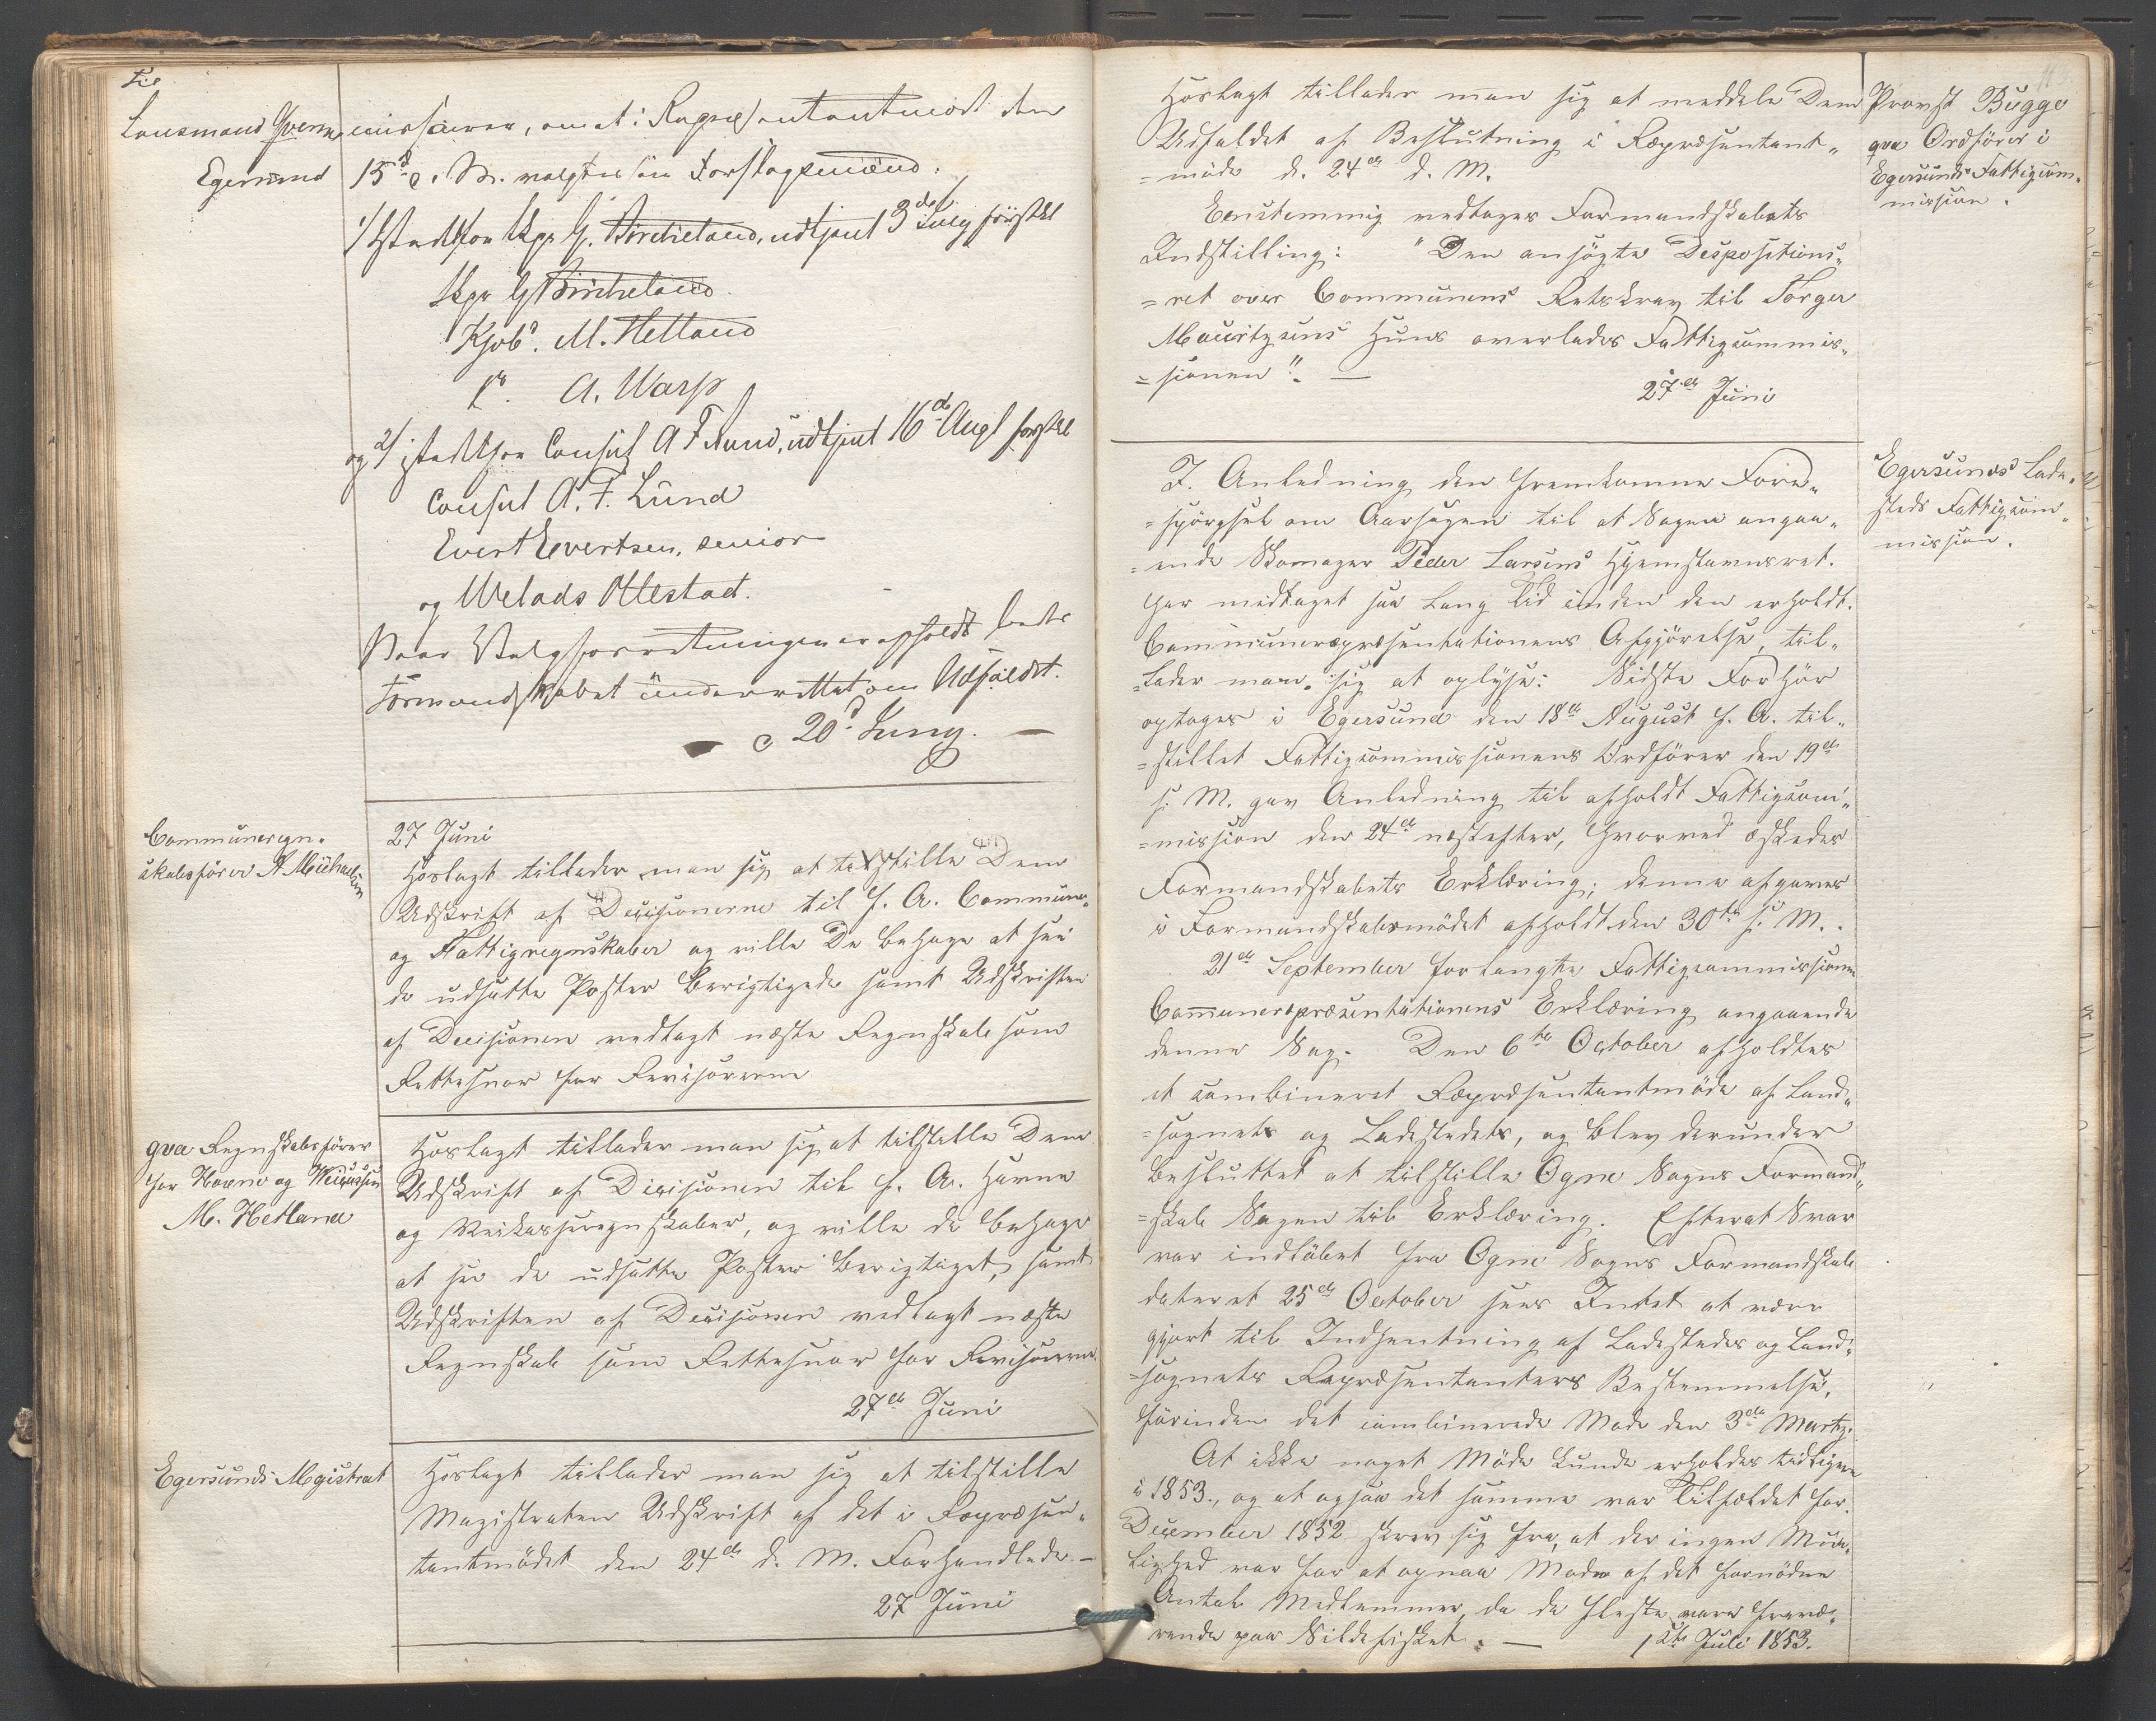 Til
Lensmand Qverne
Egersund
missairer, om at i Repræsentantmöde den
15d. d. M. valgtes sin Forslagsmænd:
1/ Istedetfor Skpr G. Birkeland, udtjent 3de July förstk
Skpr G Birkeland
Kjöb. M. Hetland
A. Warp
og 2/ istedetfor Consul A F Lund, udtjent 16de Augt förstk
Consul A. F. Lund
Evert Evertsen, senior
og Welads Ollestad.
Naar Valgforretningen er afholdt bedes
Formandskabet underrettet om Udfaldet.
20d Juny.
Communeregn-
skabsförer A Michaelsen
27 Juni
Hoslagt tillader man sig at tilstille Dem
Udskrift af Decisionerne til f. A. Commune-
og Fattigregnskaber og ville De behage at see
de udsatte Poster berigtigede samt Udskriften
af Decisionen vedlagt næste Regnskab som
Rettesnor for Revisorerne
qva Regnskabsförer
for Havne og
M. Hetland
Hoslagt tillader man sig at tilstille Dem
Udskrift af Decisionen til f. A. Havne
og regnskaber, og ville de behage
at see de udsatte Poster berigtiget, samt
Udskriften af Decisionen vedlagt næste
Regnskab som Rettesnor for Revisorerne.
27de Juni
Egersunds Magistrat
Hoslagt tillader man sig at tilstille
Magistraten Udskrift af det i Repræsen-
tantmödet den 24de d. M. Forhandlede –
27 Juni
Provst Bugge
qva Ordförer i
Egersunds Fattigcom-
mission.
Hoslagt tillader man sig at meddele Dem
Udfaldet af Beslutning i Repræsentant-
=möde d. 24de d. M.
Eenstemmig vedtages Formandskabets
Indstilling: "Den ansögte Despositions-
=ret over Communens Retskrav til Törger
Mauritzens Huus overlades Fattigcommis-
=sionen". —
27de Juni
Egersunds Lade-
steds Fattigcom-
mission.
I Anledning den fremkomne Fore-
=spörgsel om Aarsagen til at Sagen angaa-
=ende Skomager Peder Larsens Hjemstavnsret
har medtaget saa lang Tid inden den erholdt
Communerepræsentationens Afgjörelse, til-
=lader man sig at oplyse: Sidste Forhör
optages i Egersund den 18de August f. A. til-
=stillet Fattigcommissionens Ordförer den 19de
s. M. gav Anledning til afholdt Fattigcom-
=mission den 24de næstefter, hvorved æskedes
Formandskabets Erklæring; denne afgaves
i Formandskabsmödet afholdt den 30te s. M.
21de September forlangte Fattigcommissionen
Communerepræsentationens Erklæring angaaende
denne Sag. Den 6te October afholdtes
et combineret Repræsentantmöde af Land-
=sognets og Ladestedets, og blev derunder
besluttet at tilstille Ogne Sogns Formand-
=skab Sagen til Erklæring. Efterat Svar
var indlöbet fra Ogne Sogns Formandskab
dateret 25de October sees Intet at være
gjort til Indhentning af Ladestedes og Land-
=sognets Repræsentanters Bestemmelse,
förinden det combinerede Möde den 3die Martz.
At ikke noget Möde kunde erholdes tidligere
i 1853., og at ogsaa det samme var Tilfældet for
December 1852 skrev sig fra, at der ingen Mue-
lighed var for at opnaa Möde af det fornödne
Antal Medlemmer, da de fleste vare fravæ-
rende paa Sildefisket. —
1ste Juli 1853.